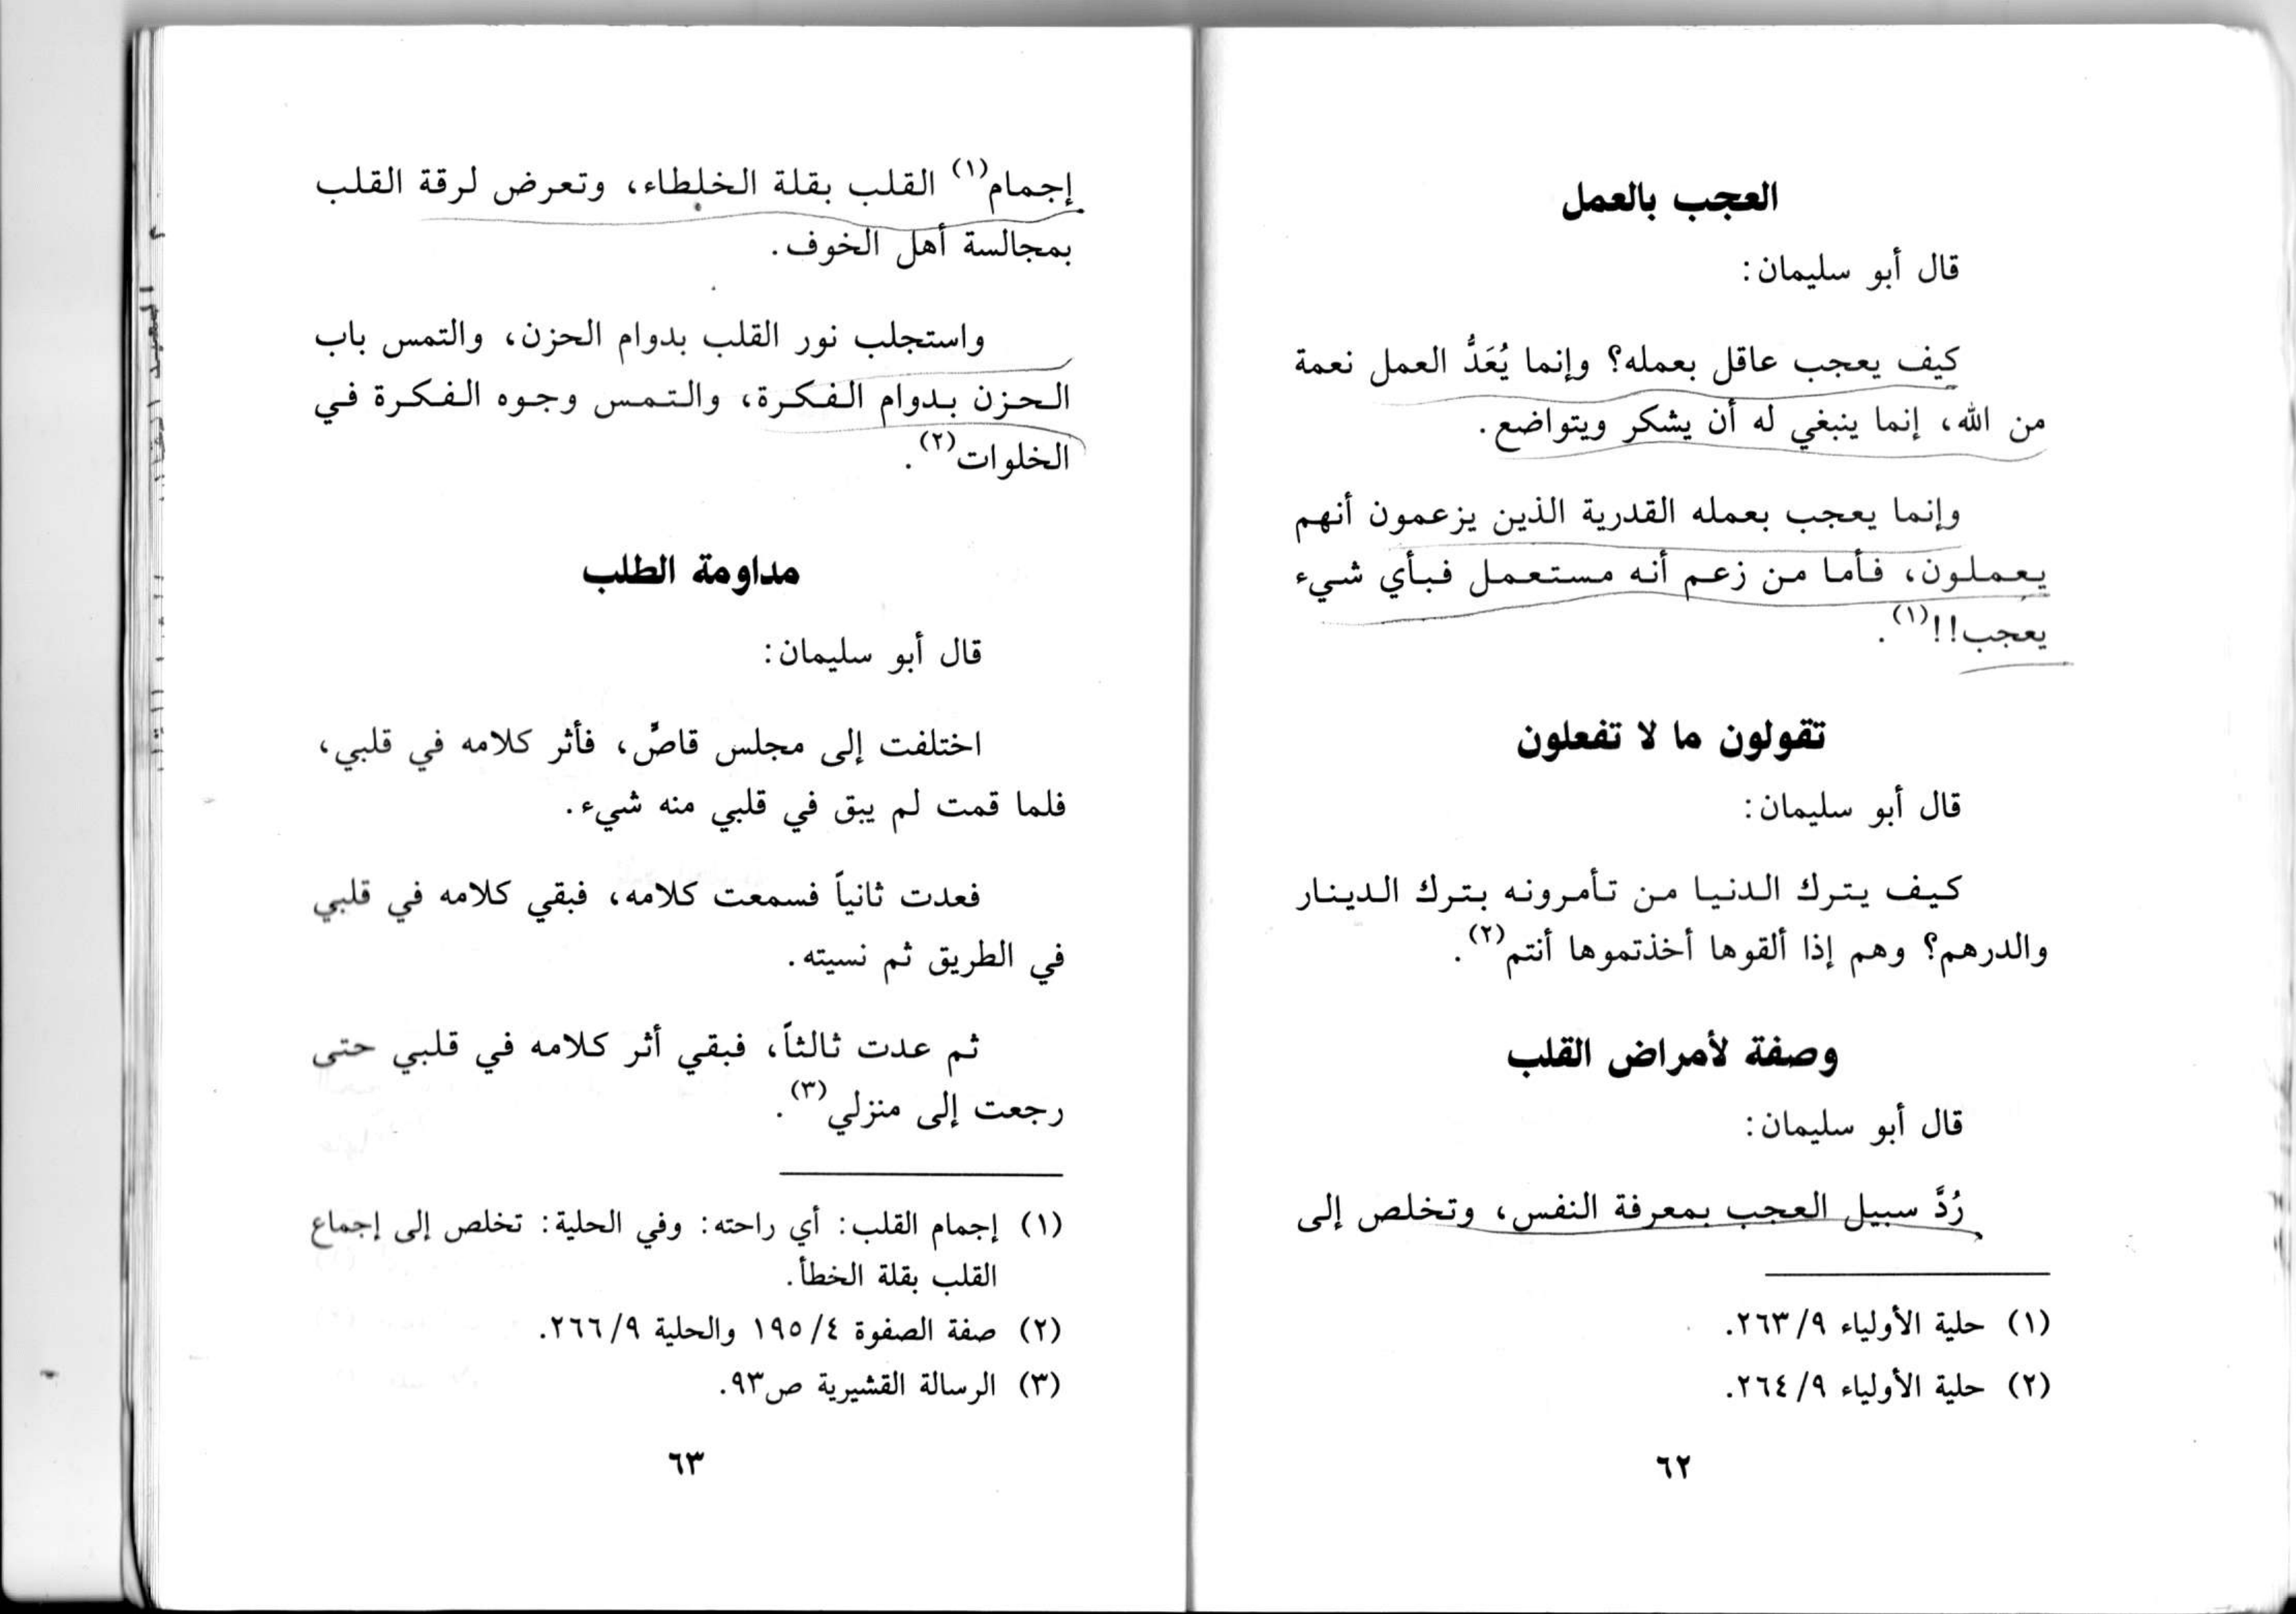 العجب بالعمل
قال أبو سليمان:
كيف يعجب عاقل بعمله؟ وإنما يُعَدُّ العمل نعمة
من الله، إنما ينبغي له أن يشكر ويتواضع.
وإنما يعجب بعمله القدرية الذين يزعمون أنهم
يعملون، فأما من زعم أنه مستعمل فبأي شيء
يعجب!!(١).
تقولون ما لا تفعلون
قال أبو سليمان:
كيف يترك الدنيا من تأمرونه بترك الدينار
والدرهم؟ وهم إذا ألقوها أخذتموها أنتم(٢).
وصفة لأمراض القلب
قال أبو سليمان:
رُدَّ سبيل العجب بمعرفة النفس، وتخلص إلى
(١) حلية الأولياء ٩/ ٢٦٣.
(٢) حلية الأولياء ٩/ ٢٦٤.
٦٢
إجمام(١) القلب بقلة الخلطاء، وتعرض لرقة القلب
بمجالسة أهل الخوف.
واستجلب نور القلب بدوام الحزن، والتمس باب
الحزن بدوام الفكرة، والتمس وجوه الفكرة في
الخلوات(٢).
مداومة الطلب
قال أبو سليمان:
اختلفت إلى مجلس قاصٍّ، فأثر كلامه في قلبي،
فلما قمت لم يبق في قلبي منه شيء.
فعدت ثانياً فسمعت كلامه، فبقي كلامه في قلبي
في الطريق ثم نسيته.
ثم عدت ثالثاً، فبقي أثر كلامه في قلبي حتى
رجعت إلى منزلي(٣).
(١) إجمام القلب: أي راحته: وفي الحلية: تخلص إلى إجماع
القلب بقلة الخطأ.
(٢) صفة الصفوة ٤/ ١٩٥ والحلية ٩/ ٢٦٦.
(٣) الرسالة القشيرية ص٩٣.
٦٣